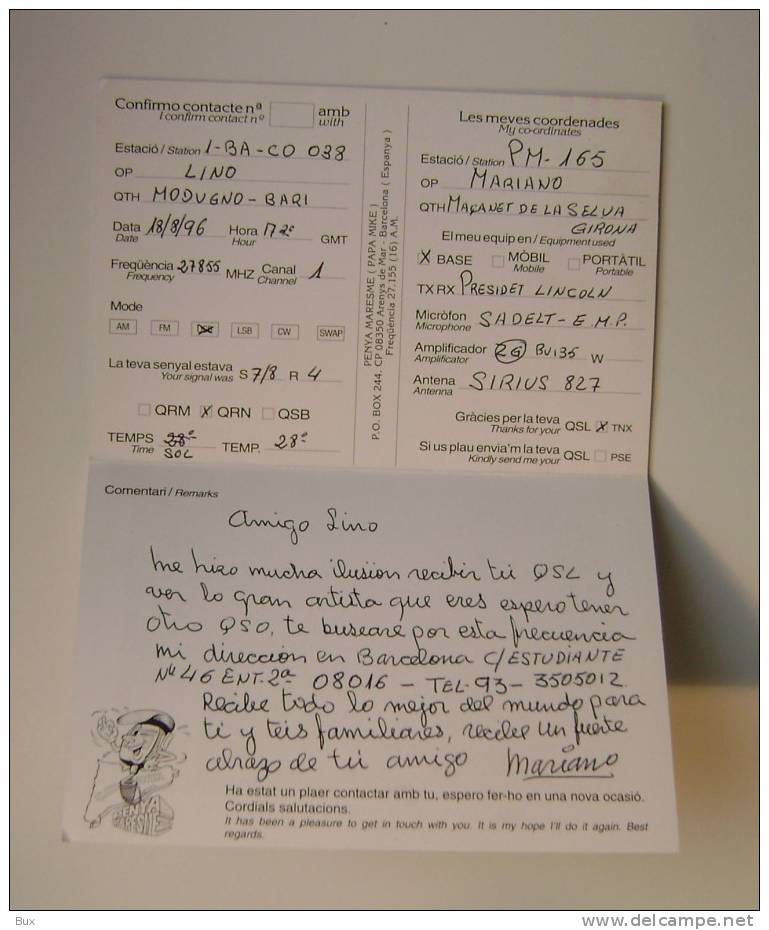 Confirmo contacte nª amb
I confirm contact nº with
Estació / Station 1-BA-CO 038
OP LINO
QTH MODUGNO - BARI
Data 18/8/96 Hora 17 2º GMT
Date Hour
Freqüència 27855 MHZ Canal 1
Frequency Channel
Mode
AM FM LSB CW SWAP
La teva senyal estava S 7/8 R 4
Your signal was
QRM X QRN QSB
TEMPS 28º TEMP. 28º
Time SOL
PENYA MARESME ( PAPA MIKE )
P.O. BOX 244. CP 08350 Arenys de Mar - Barcelona ( Espanya )
Freqüència 27.155 (16) A.M.
Les meves coordenades
My co-ordinates
Estació / Station PM-165
OP MARIANO
QTH MAÇANET DE LA SELVA
GIRONA
El meu equip en / Equipment used
X BASE MÒBIL PORTÀTIL
Mobile Portable
TX RX PRESIDET LINCOLN
Micròfon SADELT - E.M.P.
Microphone
Amplificador ZG BV135 W
Amplificator
Antena SIRIUS 827
Antenna
Gràcies per la teva QSL X TNX
Thanks for your
Si us plau envia'm la teva QSL PSE
Kindly send me your
Comentari / Remarks
Amigo Lino
me hizo mucha ilusion recibir tú QSL y
ver lo gran artista que eres espero tener
otro QSO, te buscare por esta frecuencia
mi direccion en Barcelona C/ ESTUDIANTE
Nº 46 ENT. 2ª 08016 - TEL. 93 - 3505012
Recibe todo lo mejor del mundo para
ti y tús familiares, recibe un fuerte
abrazo de tú amigo Mariano
PENYA
MARESME
Ha estat un plaer contactar amb tu, espero fer-ho en una nova ocasió.
Cordials salutacions.
It has been a pleasure to get in touch with you. It is my hope I'll do it again. Best
regards.
Bux
www.delcampe.net